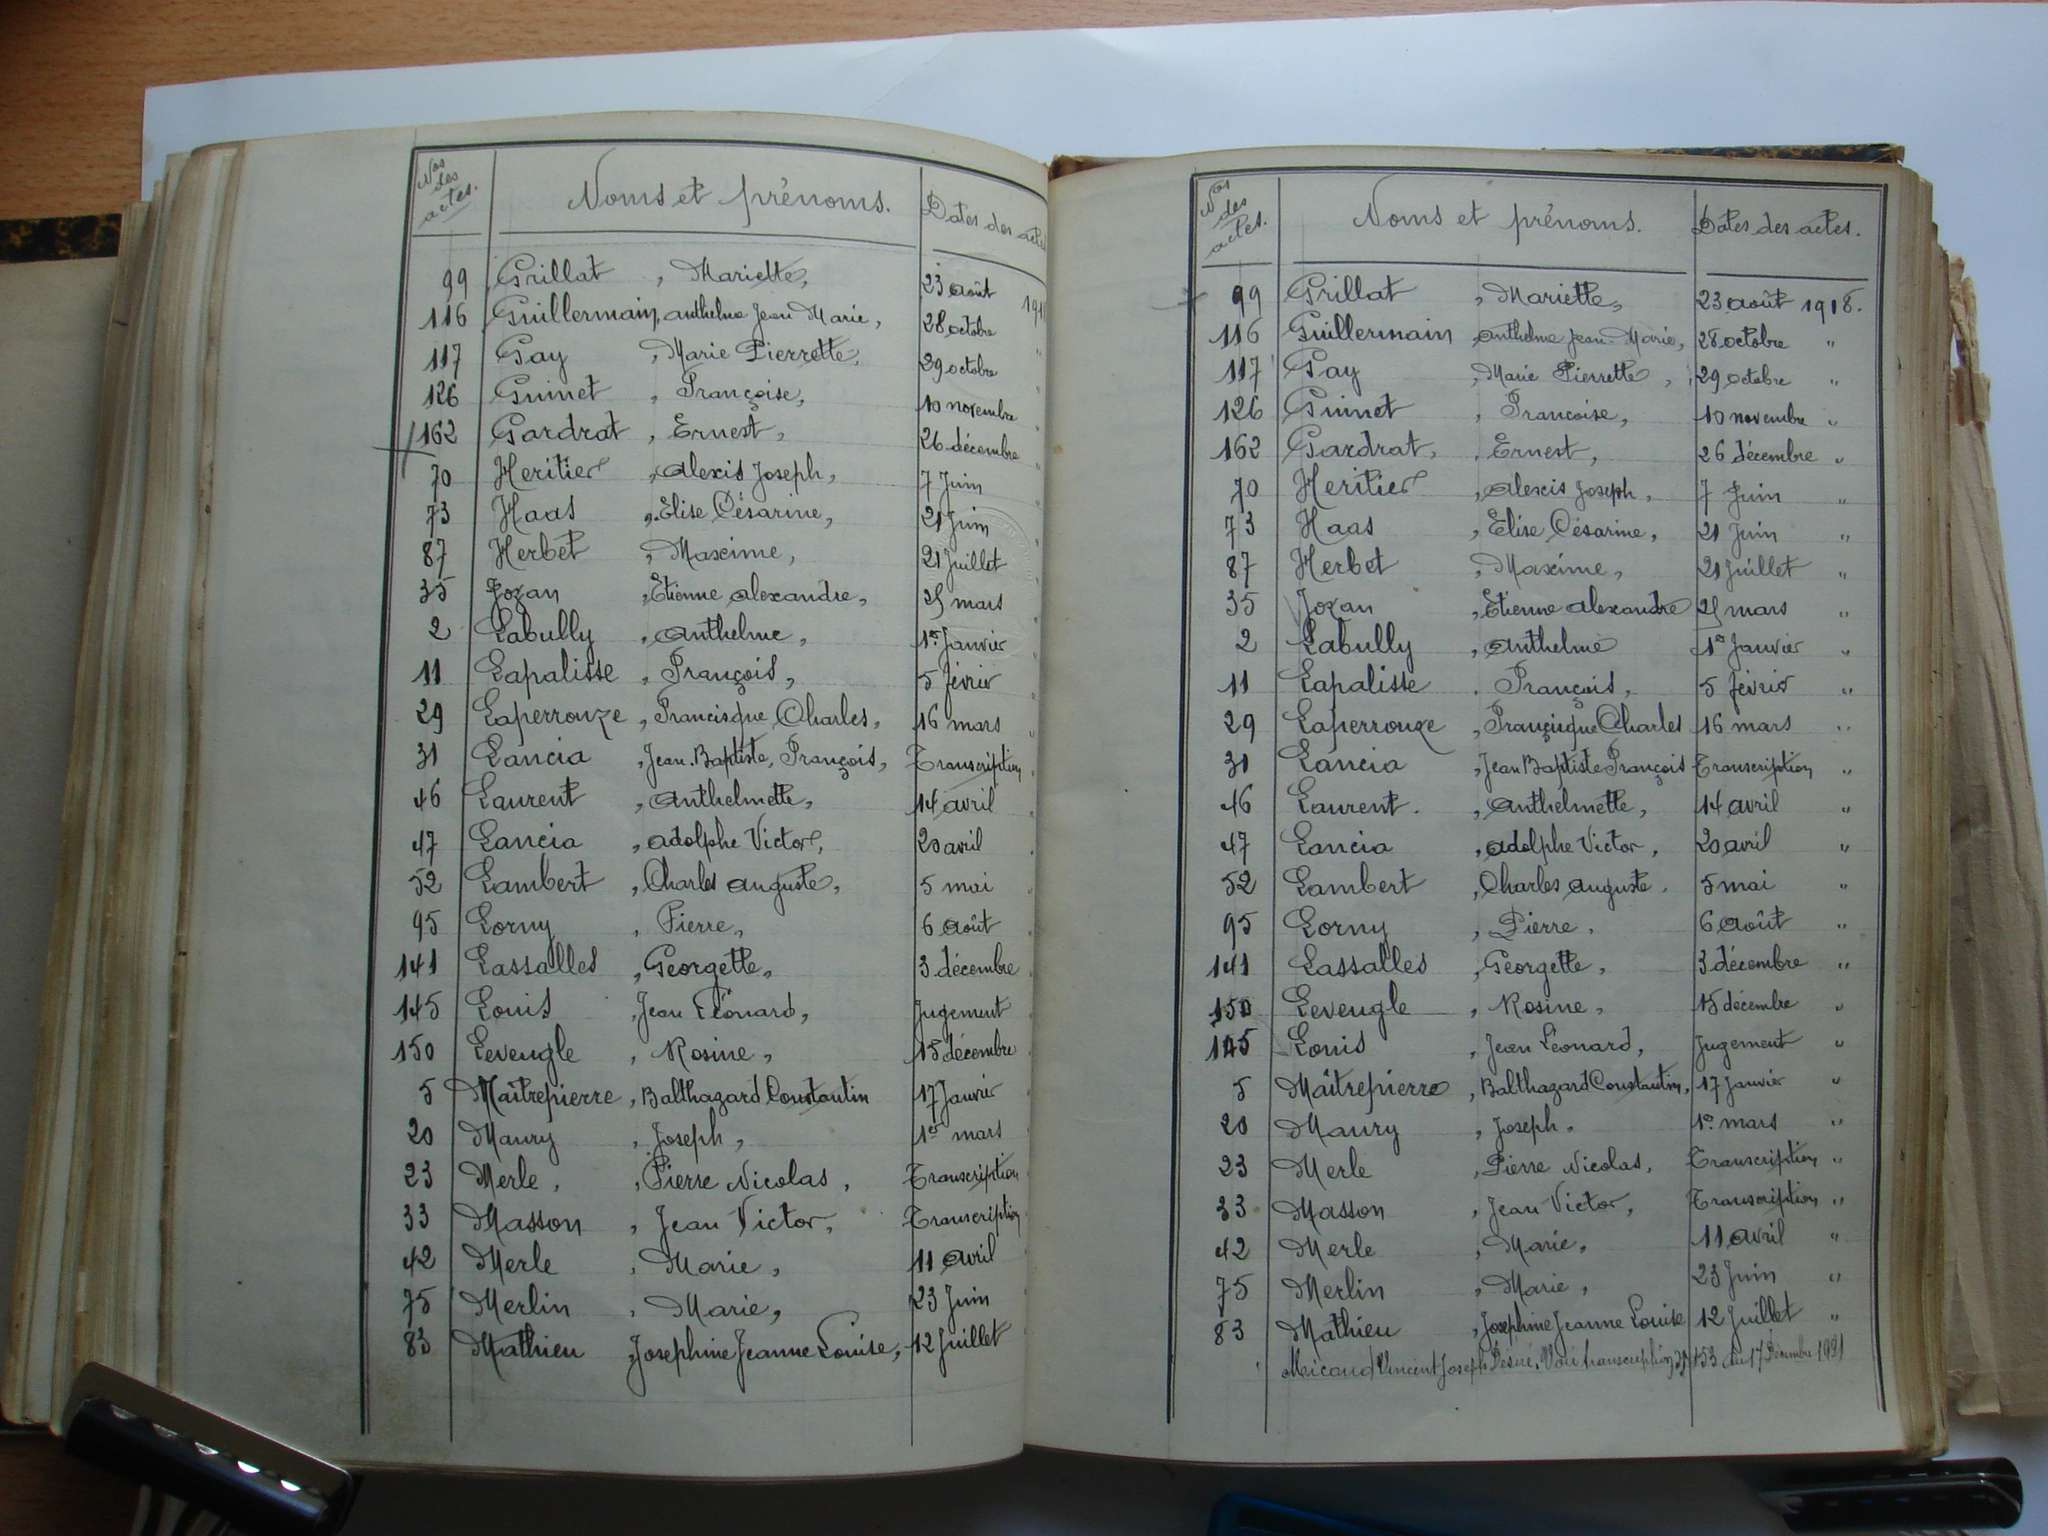 Nos des actes. Noms et prénoms. Dates des actes
99 Grillat, Mariette, 23 août 1918
116 Guillermain, anthelme Jean Marie, 28 octobre "
117 Gay, Marie Pierrette, 29 octobre "
126 Guinet, Françoise, 10 novembre "
162 Gardrat, Ernest, 26 décembre "
70 Heritier, alexis Joseph, 7 Juin
73 Haas, Elise Césarine, 21 Juin
87 Herbet, Maxime, 21 Juillet
35 Jozan, Etienne alexandre, 25 mars
2 Labully, anthelme, 1er Janvier
11 Lapalisse, François, 5 février
29 Laperrouze, Francisque Charles, 16 mars
31 Lancia, Jean-Baptiste, François, Transcription
46 Laurent, anthelmette, 14 avril
47 Lancia, adolphe Victor, 20 avril
52 Lambert, Charles auguste, 5 mai
95 Lorny, Pierre, 6 août
141 Lassalles, Georgette, 3 décembre
145 Louis, Jean Léonard, Jugement
150 Leveugle, Rosine, 15 décembre
5 Maîtrepierre, Balthazard Constantin 17 Janvier
20 Maury, Joseph, 1er mars
23 Merle, Pierre Nicolas, Transcription
33 Masson, Jean Victor, Transcription
42 Merle, Marie, 11 avril
75 Merlin, Marie, 23 Juin
83 Mathieu, Josephine Jeanne Louise, 12 Juillet
Nos des actes. Noms et prénoms. Dates des actes.
99 Grillat, Mariette, 23 août 1918.
116 Guillermain anthelme Jean-Marie, 28 octobre "
117 Gay, Marie Pierrette, 29 octobre "
126 Guinet, Francoise, 10 novembre "
162 Gardrat, Ernest, 26 décembre "
70 Heritier, alexis Joseph, 7 Juin "
73 Haas, Elise Césarine, 21 Juin "
87 Herbet, Maxime, 21 Juillet "
35 Jozan, Etienne alexandre 25 mars "
2 Labully, anthelme 1er Janvier "
11 Lapalisse, François, 5 février "
29 Laperrouze, Françisque Charles 16 mars "
31 Lancia, Jean Baptiste François Transcription "
46 Laurent, anthelmette, 14 avril "
47 Lancia, adolphe Victor, 20 avril "
52 Lambert, Charles auguste. 5 mai "
95 Lorny, Pierre, 6 août "
141 Lassalles, Georgette, 3 décembre "
150 Leveugle, Rosine, 15 décembre "
145 Louis, Jean Léonard, Jugement "
5 Maîtrepierre, Balthazard Constantin, 17 Janvier "
20 Maury, Joseph, 1er mars "
23 Merle, Pierre Nicolas, Transcription "
33 Masson, Jean Victor, Transcription "
42 Merle, Marie, 11 avril "
75 Merlin, Marie, 23 Juin "
83 Mathieu, Josephine Jeanne Louise 12 Juillet "
Micaud Vincent Joseph Désiré, Voir transcription 153 du 17 Décembre 1921